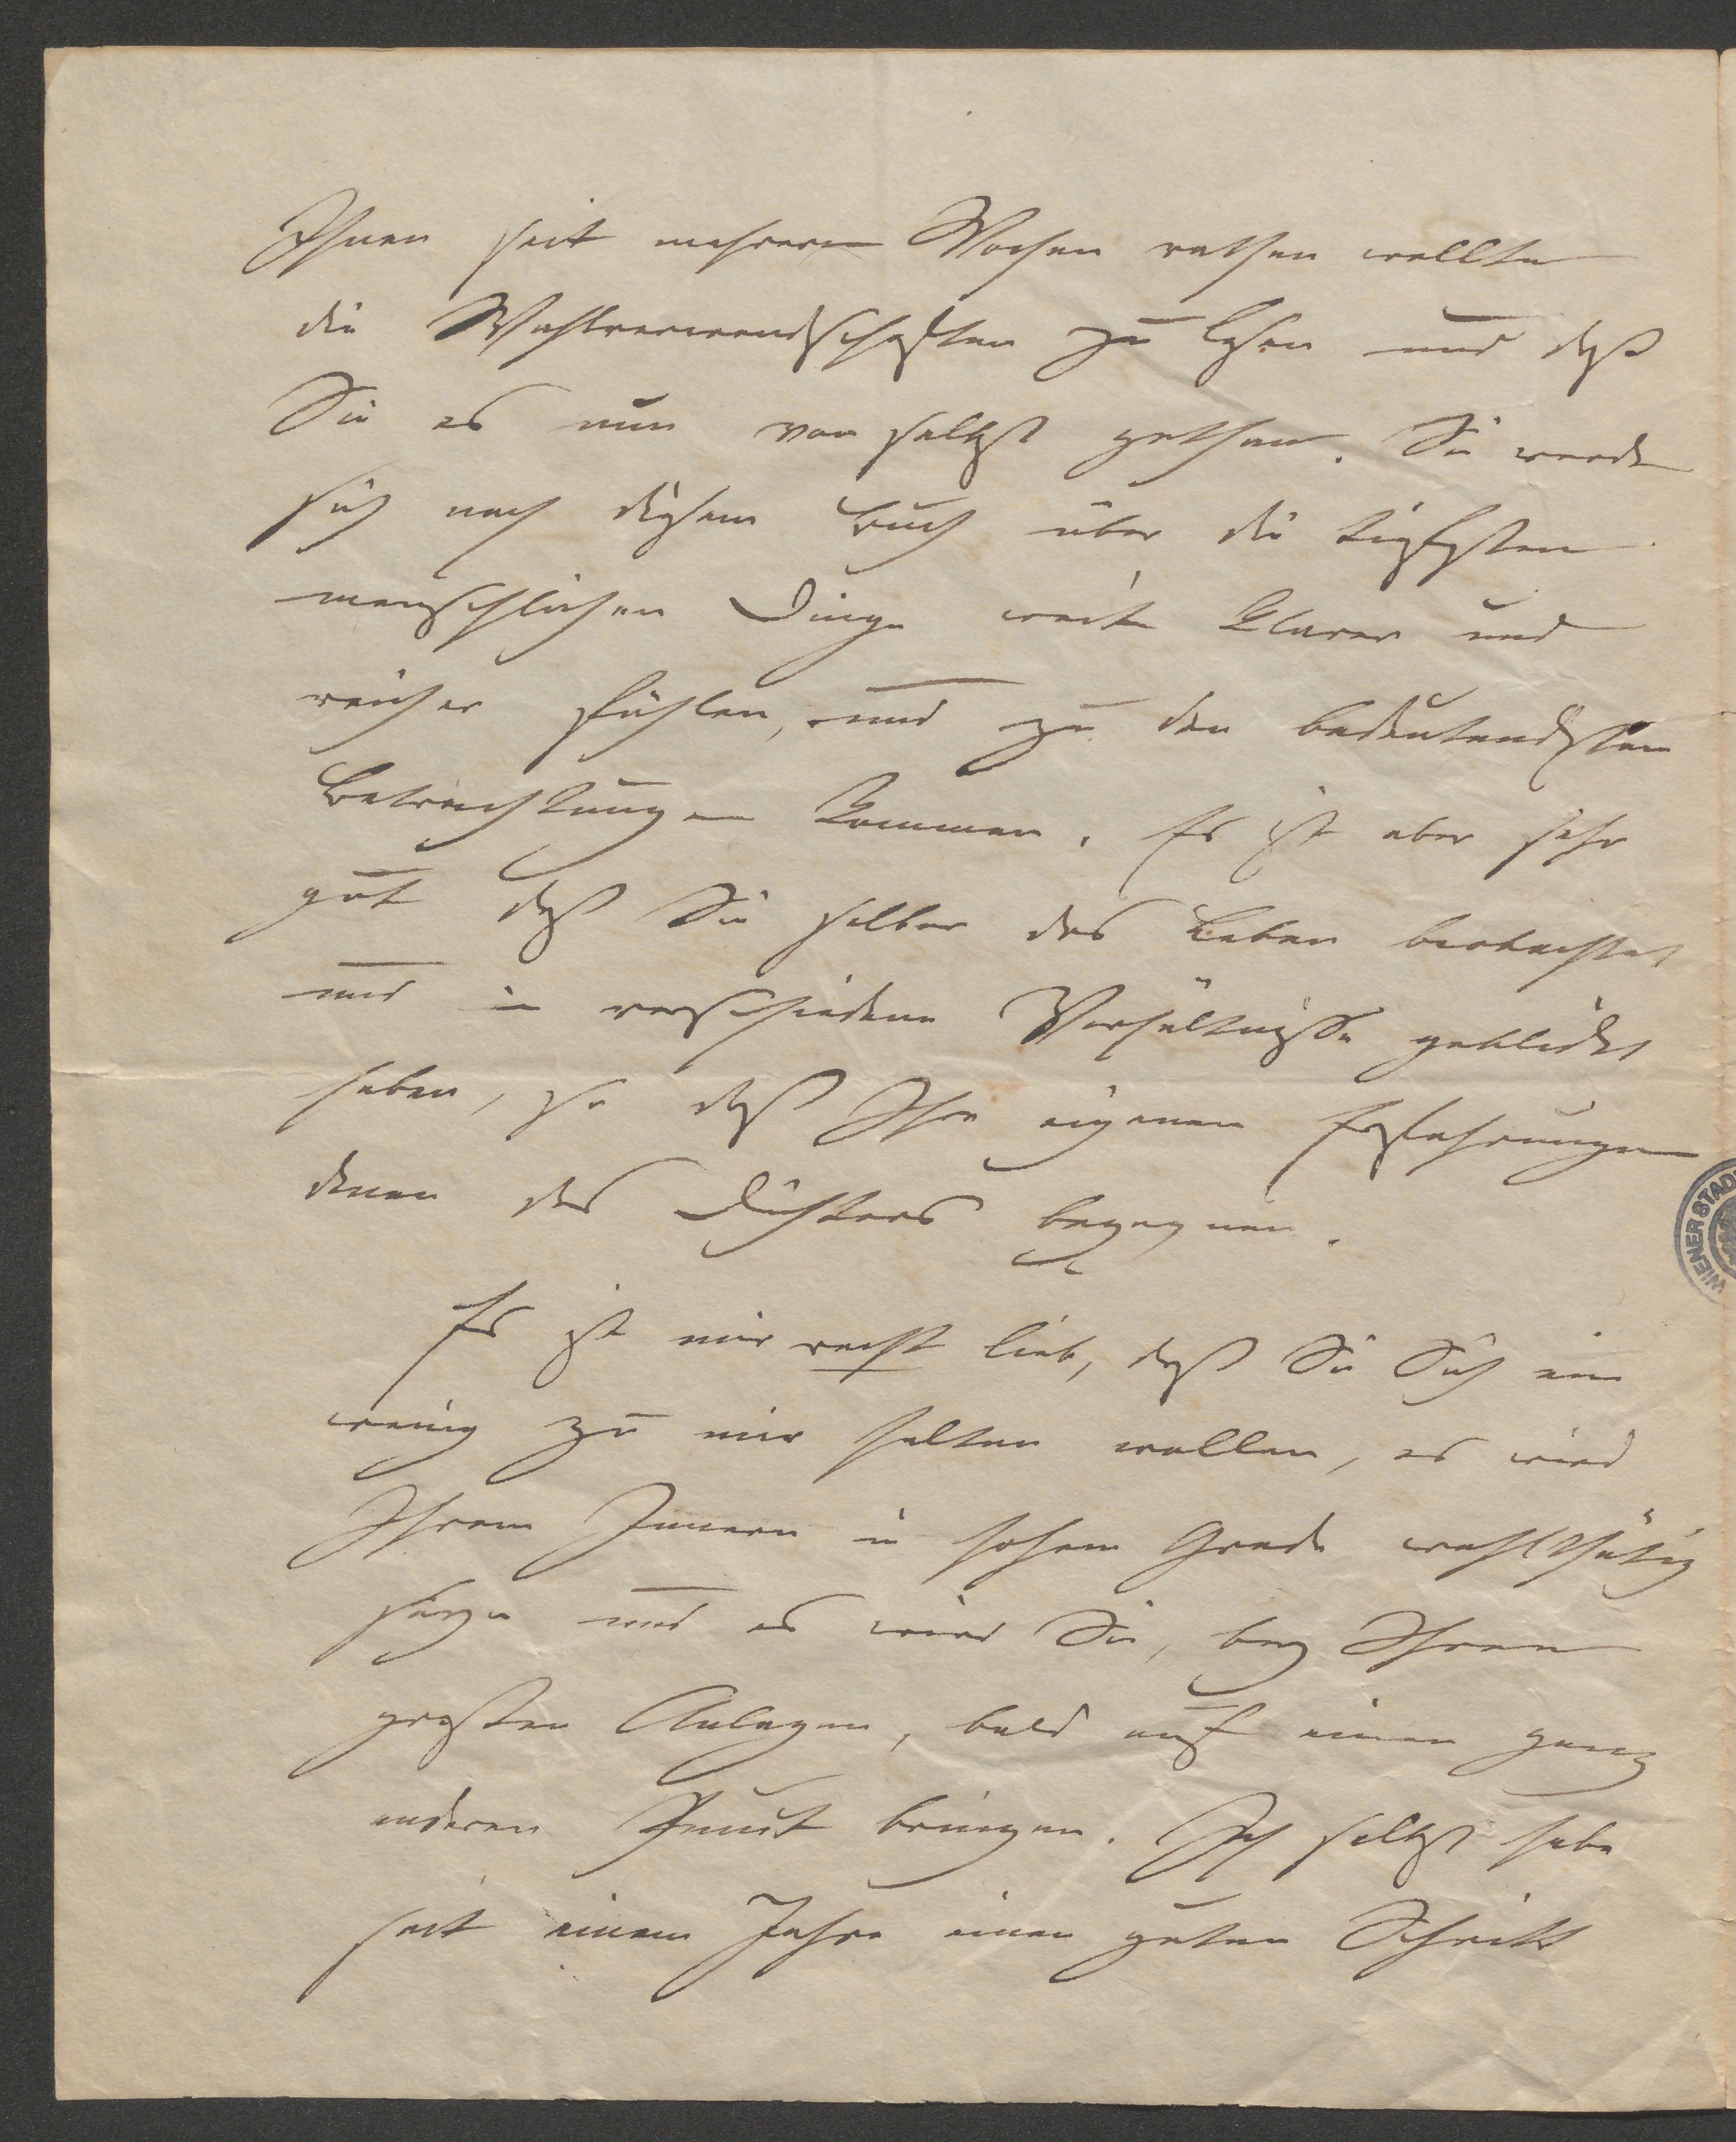 Ihnen seit mehreren Wochen rathen wollte
die Wahlverwandschaften zu lesen und daß
Sie es nun von selbst gethan. Sie werden
sich nach diesem Buch über die tiefesten
menschlichen Dinge weit klarer und
reicher fühlen, und zu den bedeutendsten
Betrachtungen kommen. Es ist aber sehr
gut daß Sie selber das Leben beobachtet
und in verschiedene Verhältnisse geblickt
haben, so daß Ihre eigenen Erfahrungen
denen des Dichters begegnen.
Es ist mir recht lieb, daß Sie Sich ein
wenig zu mir halten wollen, es wird
Ihrem Innern in hohem Grade wohlthätig
seyn und es wird Sie, bey Ihren
großen Anlagen, bald auf einen ganz
anderen Punct bringen. Ich selbst habe
seit einem Jahre einen guten Schritt
WIENER STAD